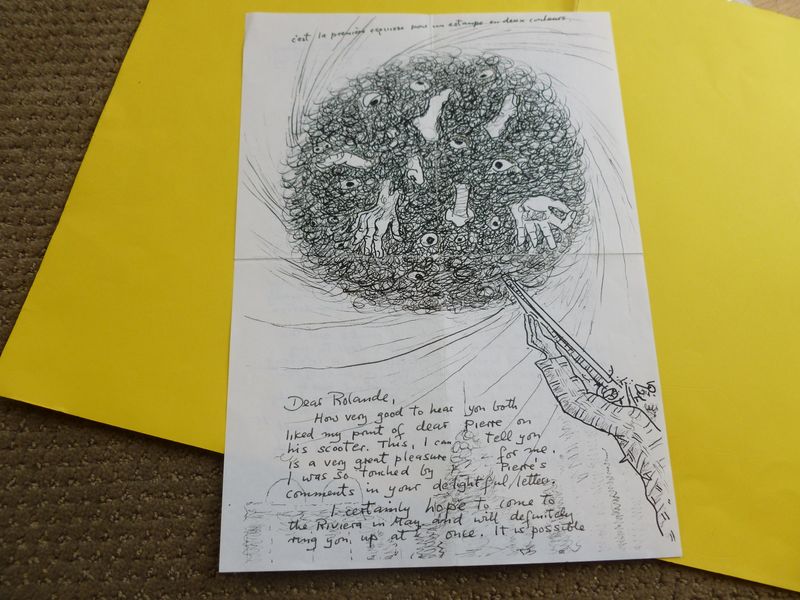 c'est la première esquisse pour un estampe en deux couleurs.
Dear Rolande,
How very good to hear you both
liked my print of dear Pierre on
his scooter. This, I can tell you
is a very great pleasure – for me.
I was so touched by Pierre's
comments in your delightful letter.
I certainly hope to come to
the Riviera in May, and will definitely
ring you up at once. It is possible